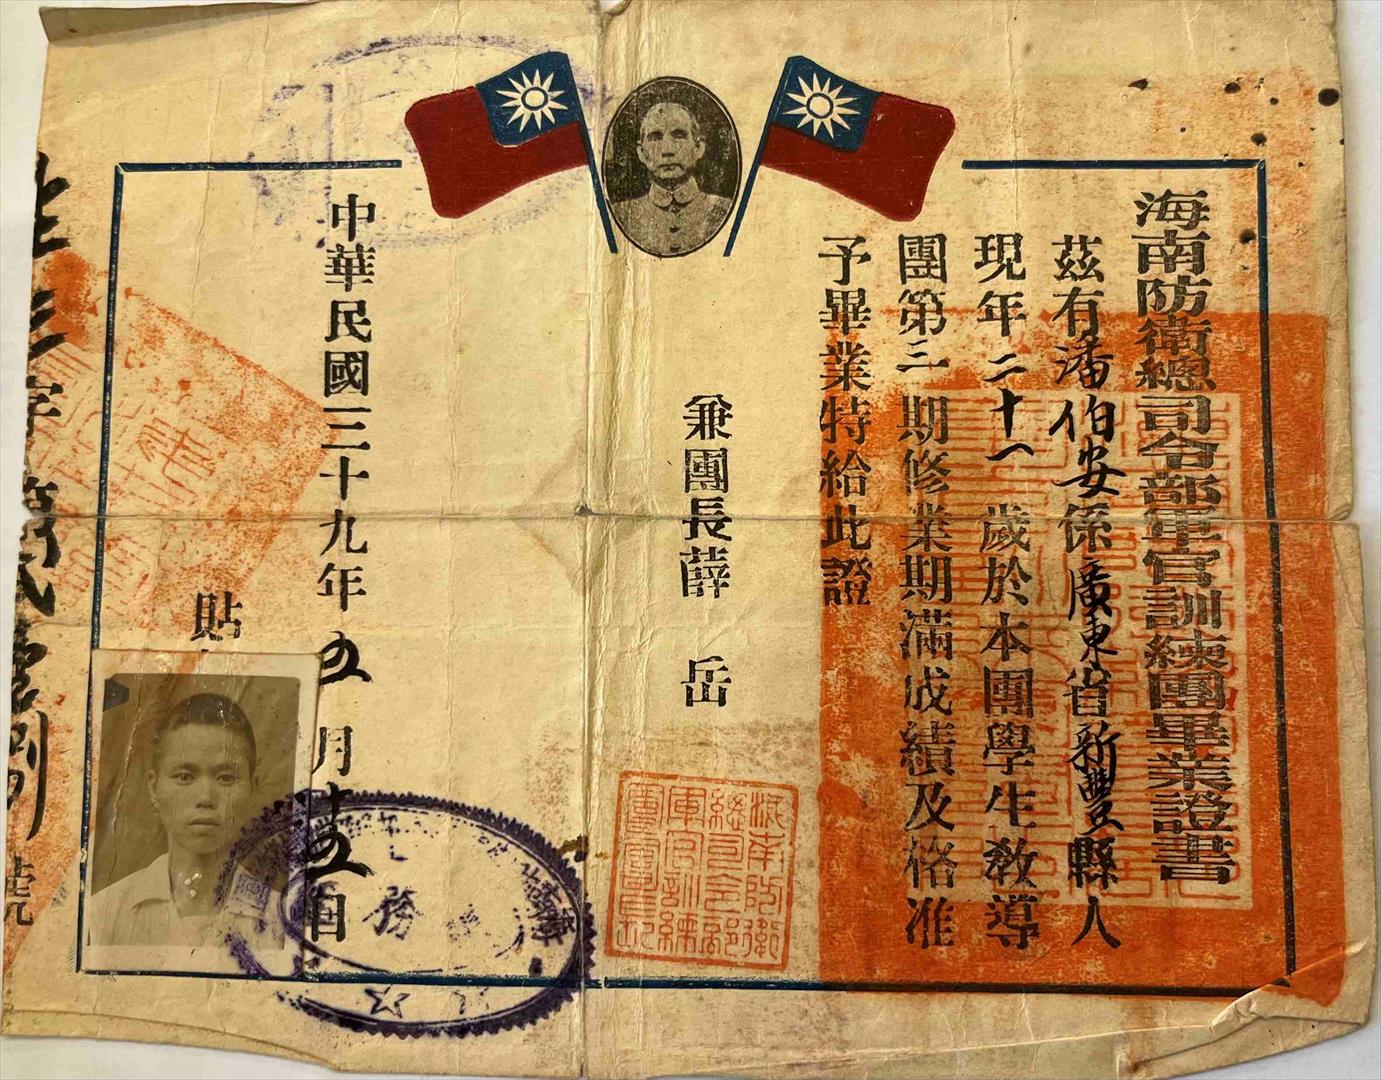 海南防衛總司令部軍官訓練團畢業證書
茲有潘伯安係廣東省新豐縣人
現年二十八歲於本團學生教導
團第三期修業期滿成績及格准
予畢業特給此證
兼團長薛岳
中華民國三十九年五月十五日
貼
海南防衛
總司令部
軍官訓練
團
務
字第
號